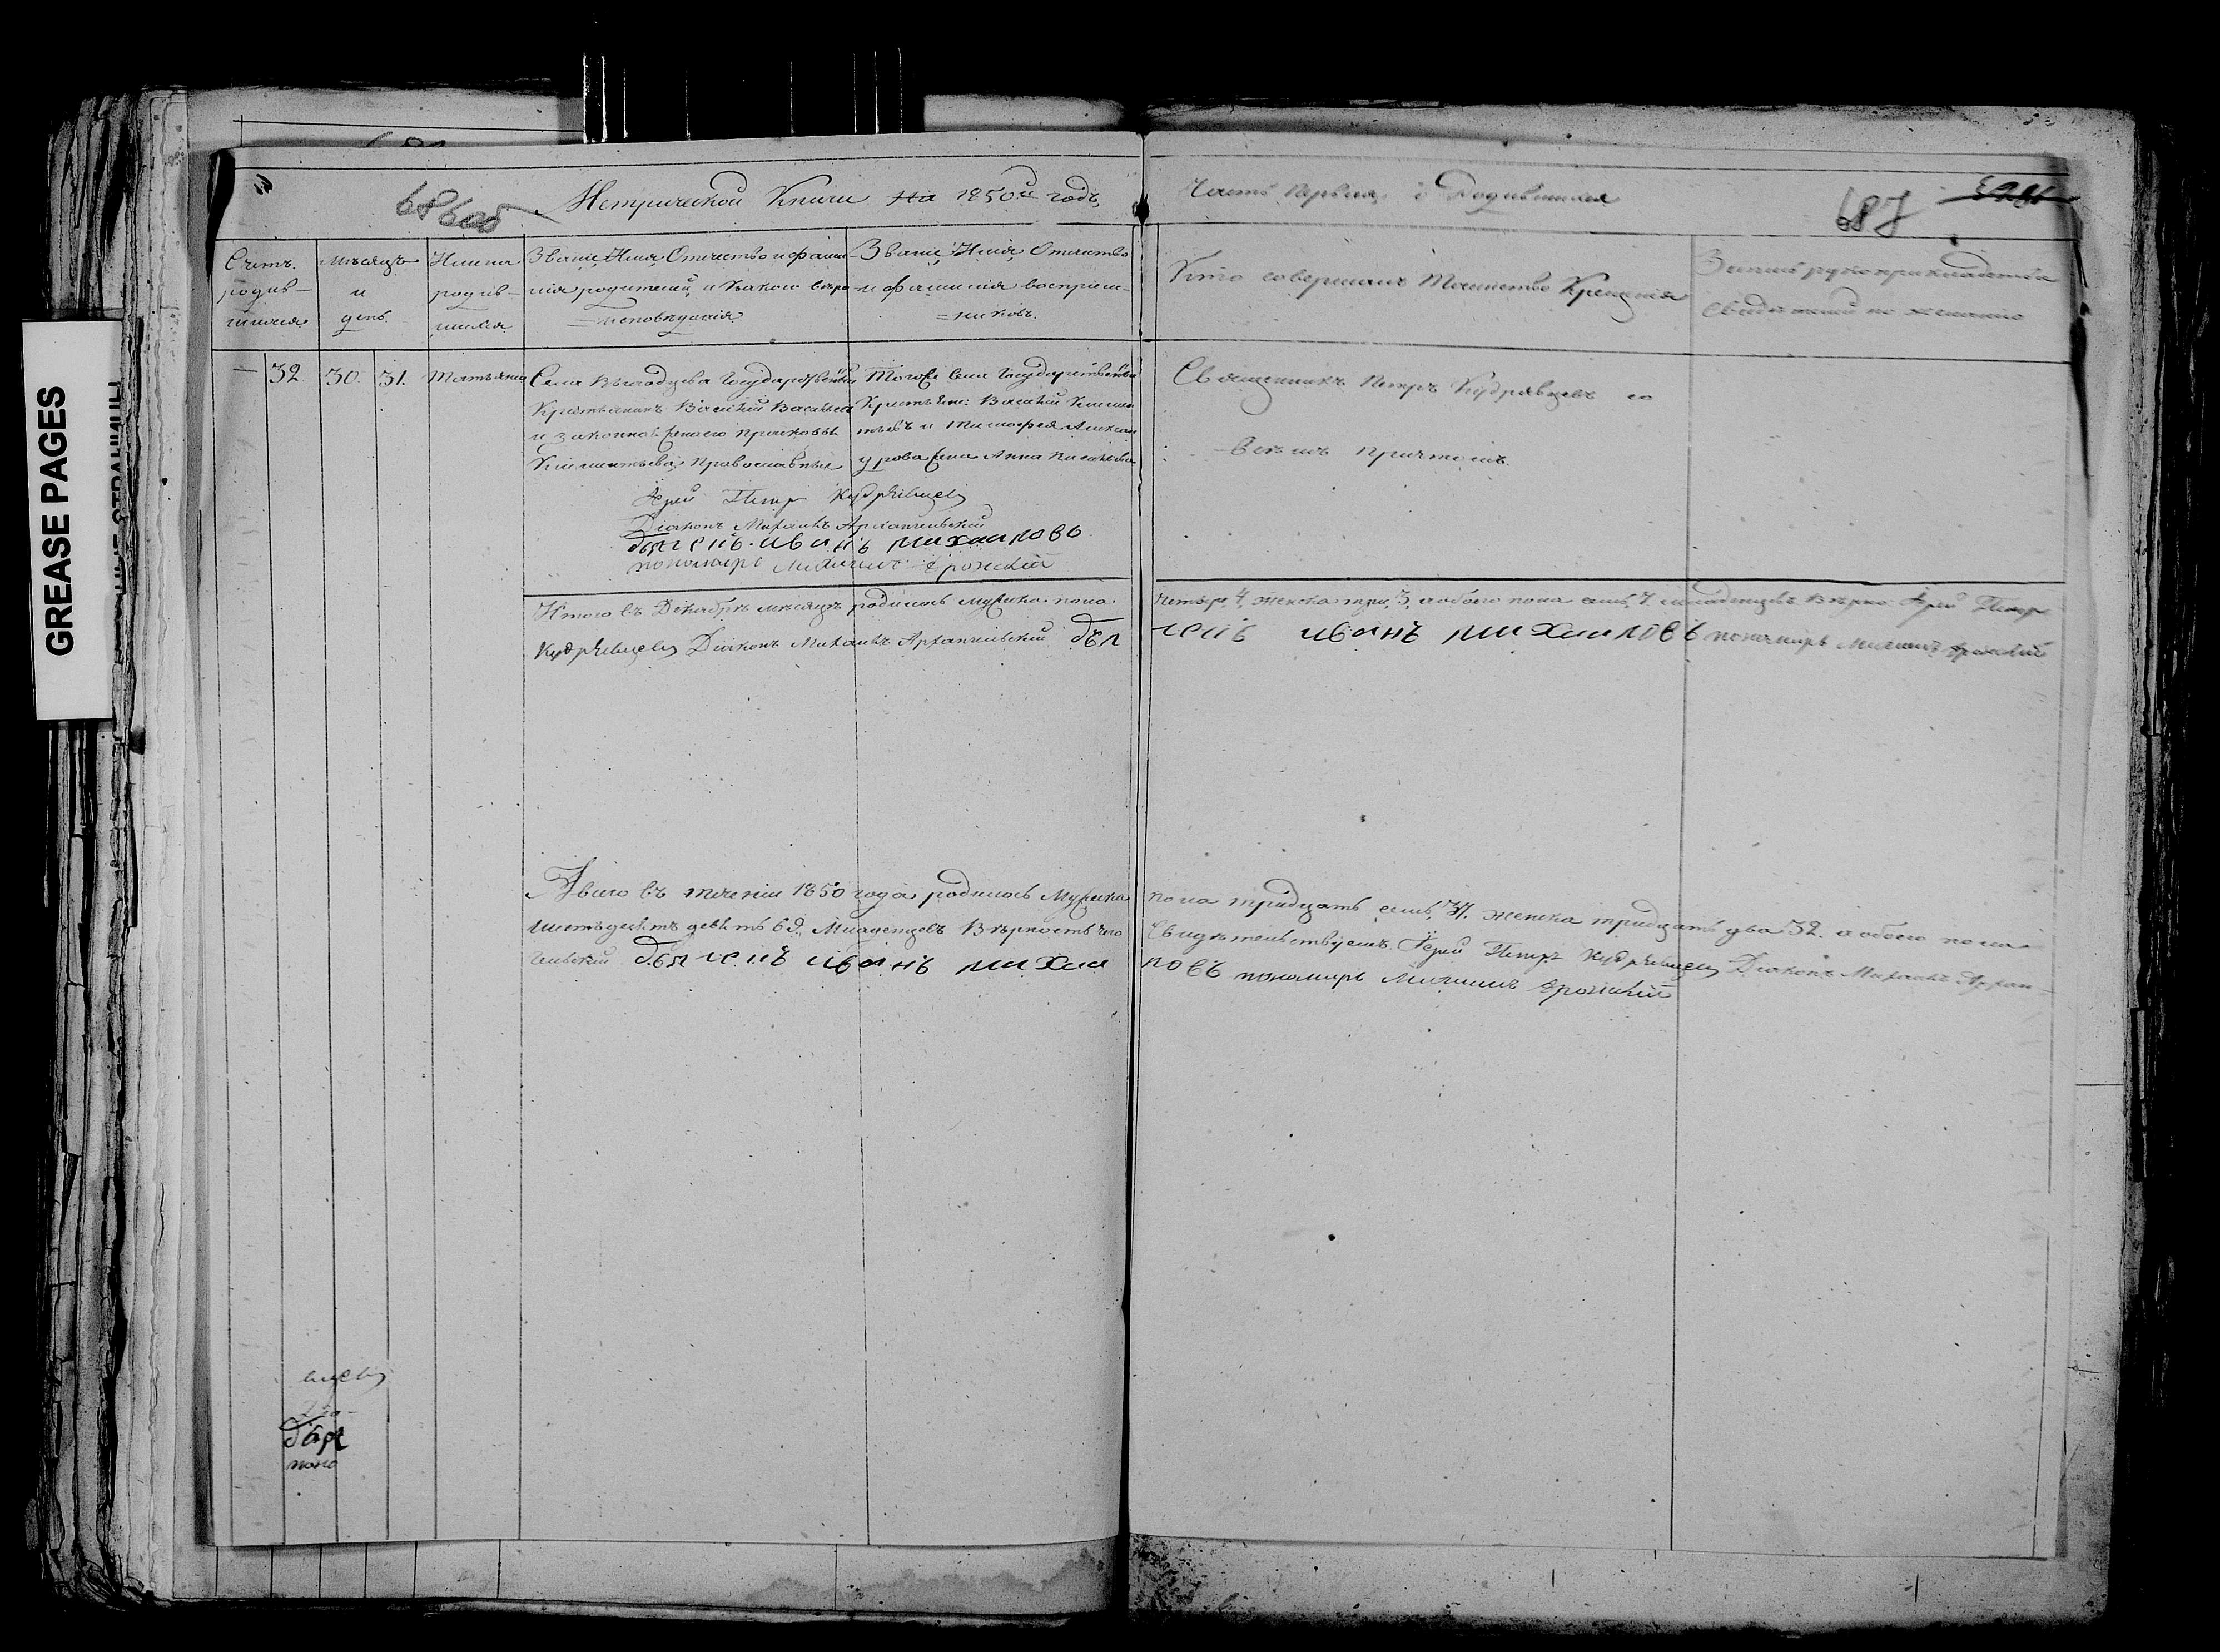 GREASE PAGES
686 об
Метрической Книги на 1850й годъ,
Часть первая, о Родившихся
687
Счетъ родив-шихся
Мѣсяцъ и день.
Имена родив-шихся
Званіе, Имя, Отечество и фами-
лія родителей, и какого вѣро-
исповѣданія.
Званіе, Имя, Отечество
и фамилія воспріем-
никовъ.
Кто совершалъ Таинство Крещенія
свидѣтелей по желанію
— 32 30. 31. Татьяна
Села Государственный
Крестьянинъ Василій Васильевъ
и законная жена его
Климентьева, Православные
Того же села Государственные
Крестьяне: Василій Климен
тьевъ и Тимофея Алексан
дрова жена Анна
Священникъ Петръ Кудрявцевъ со
всѣмъ причтомъ.
Іерей Петръ Кудрявцевъ
Діаконъ Михаилъ Архангельский
дьячекъ Иванъ Михаиловъ
пономарь
Итого въ Декабрѣ мѣсяцѣ родилось мужска пола
четыре, 4, женска три, 3, а обоего пола семь, 7. младенцевъ Вѣрно: Іерей Петръ
Кудрявцевъ Діаконъ Михаилъ Архангельский дьячекъ иванъ михаиловъ пономарь
А всего въ теченіи 1850 года родилось Мужска
пола тридцать семь, 37. женска тридцать два 32. а обоего пола
шестьдесятъ девять 69. Младенцевъ Вѣрность чего
Свидѣтельствуемъ. Іерей Петръ Кудрявцевъ Діаконъ Михаилъ Архан-
гельский дьячекъ иванъ михаи
ловъ пономарь
дья
поно